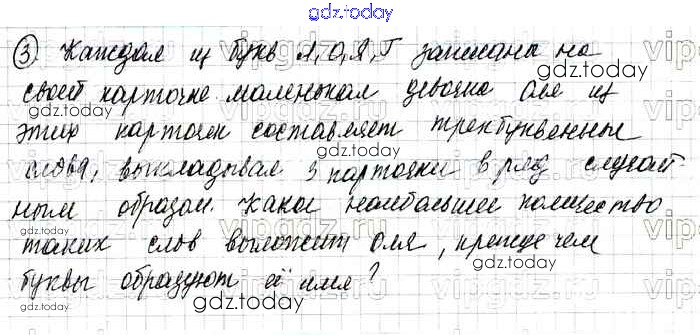 gdz.today
③ Каждая из букв Л, О, Я, Г записаны на
своей карточке маленькая девочка Оля из
этих карточек составляет трехбуквенные
слова, выкладывая 3 карточки в ряд случай
ным образом. Какое наибольшее количество
таких слов выложит Оля, прежде чем
буквы образуют её имя?
gdz.today
gdz.today
gdz.today
gdz.today
gdz.today
gdz.today